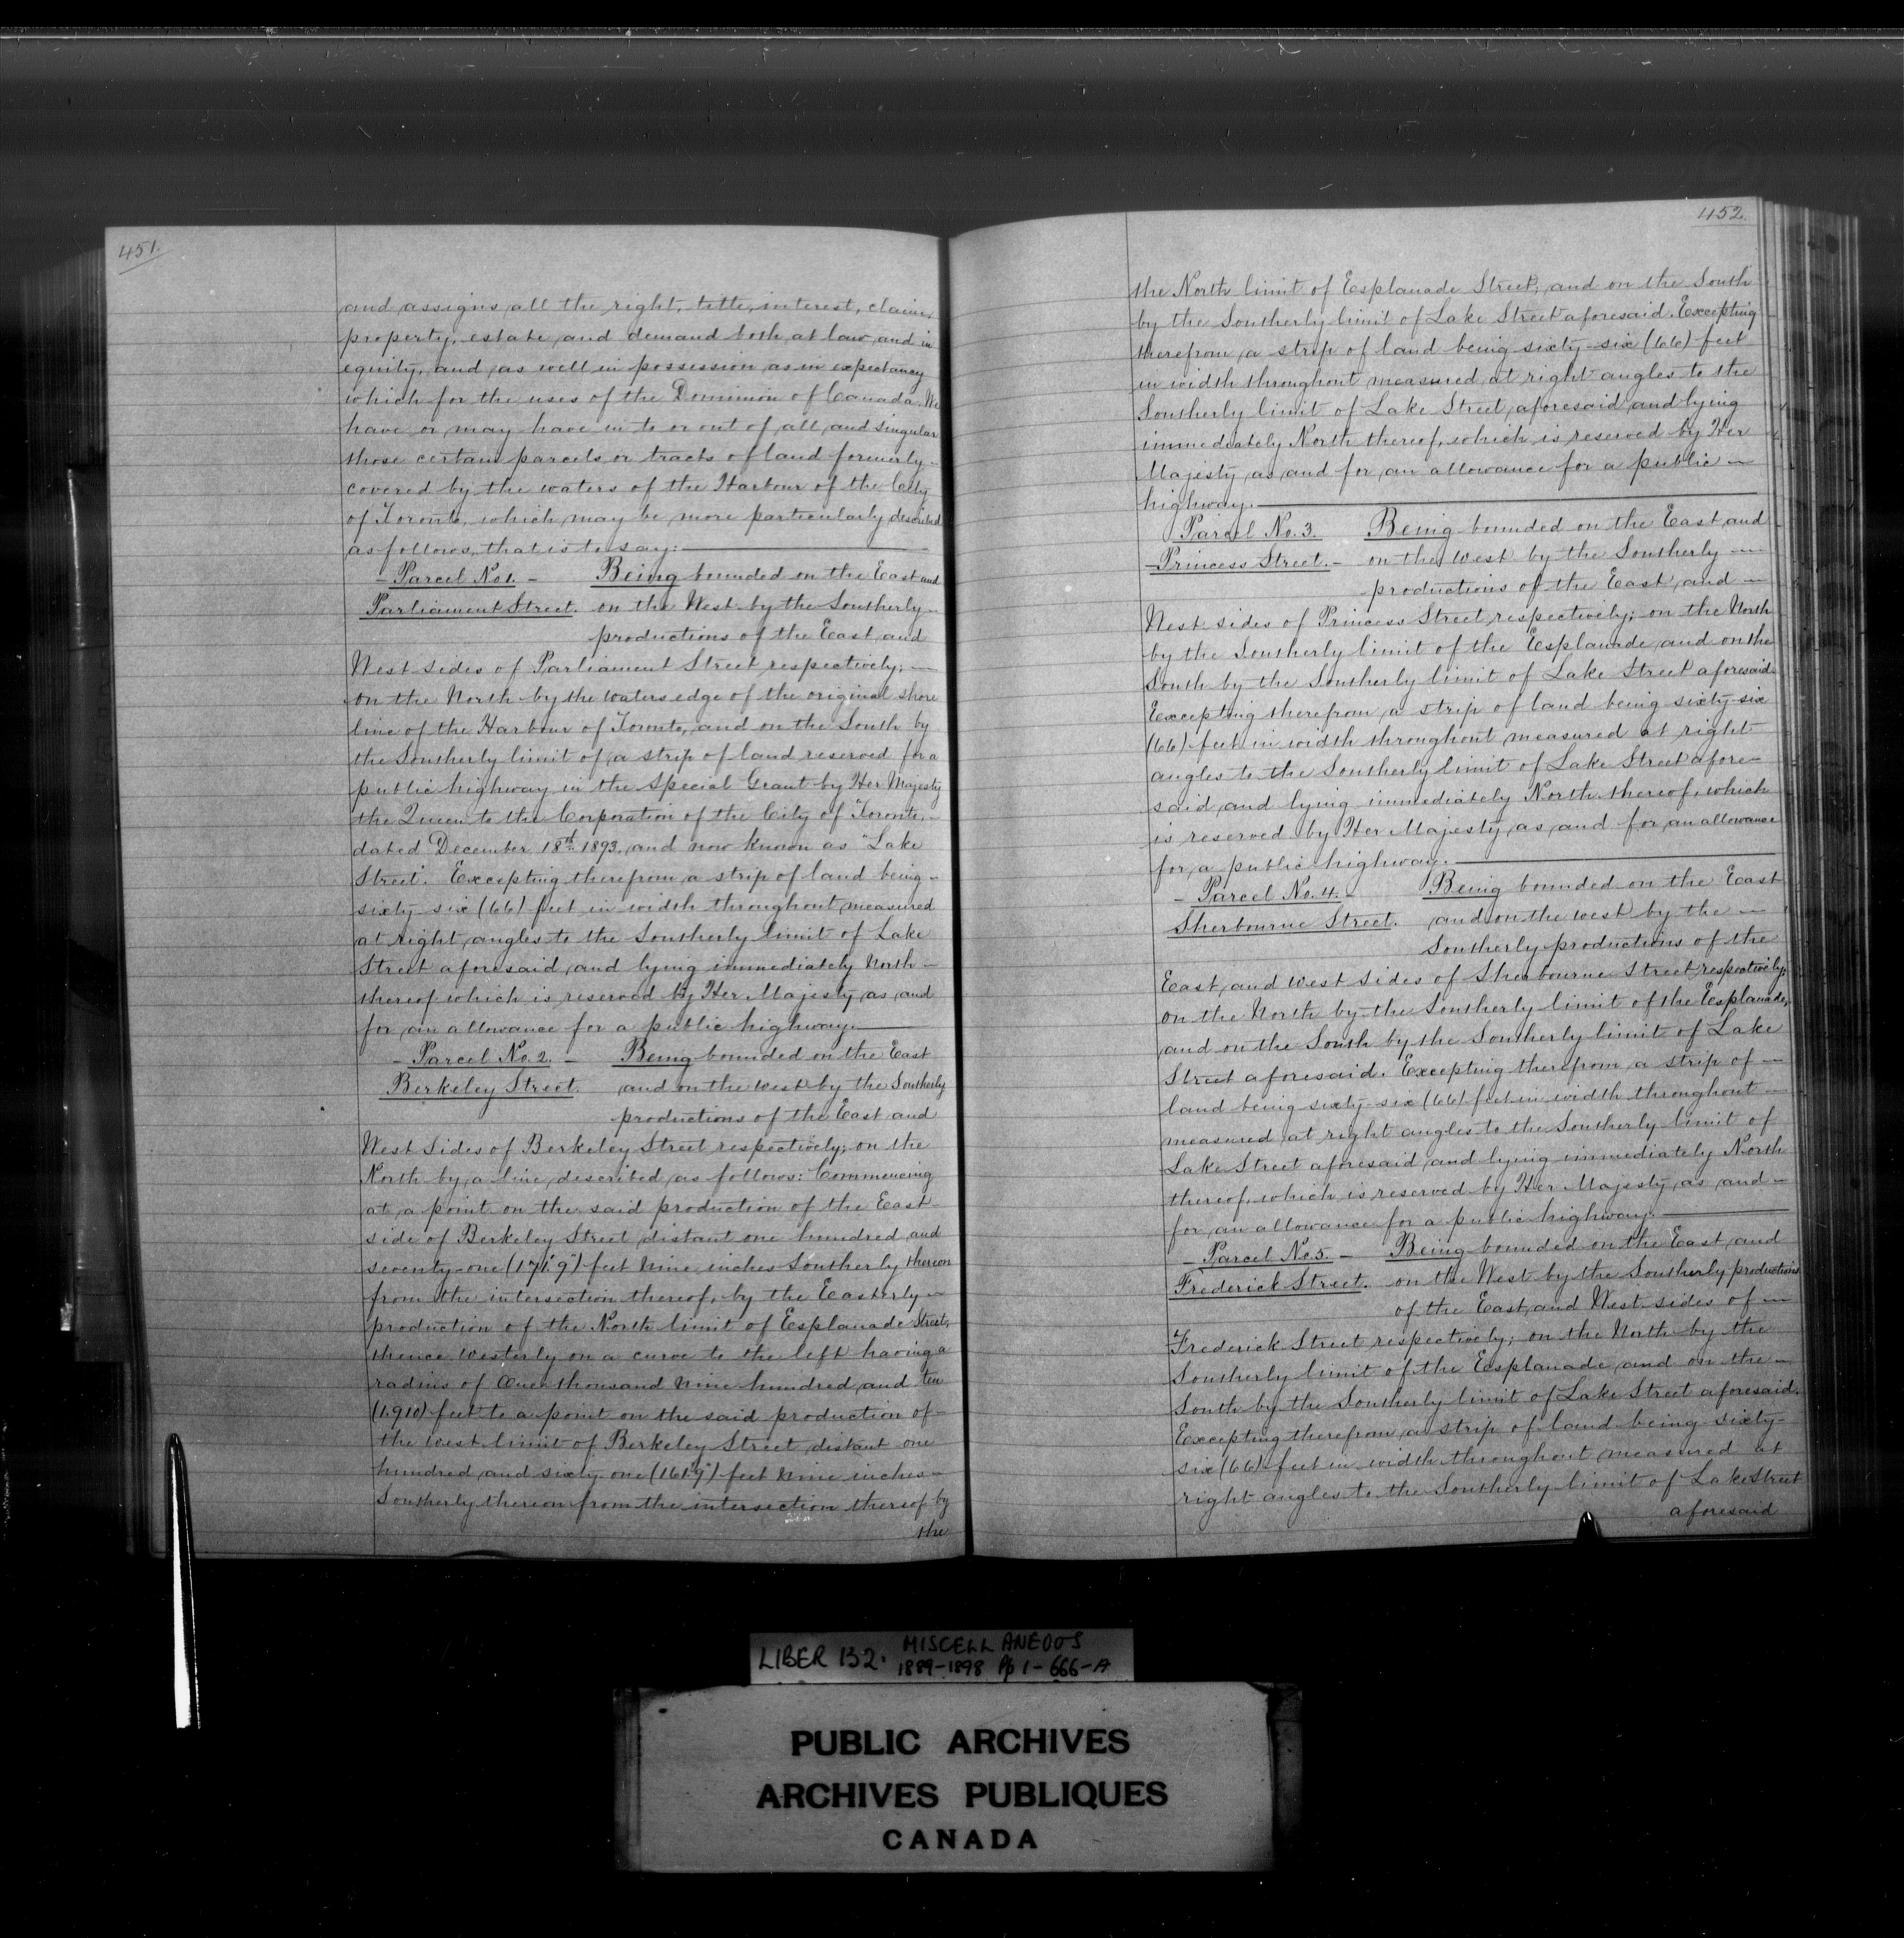 451.
and assigns all the right, title, interest, claim,
property, estate and demand both at law and in
equity, and as well in possession as in expectancy
which for the uses of the Dominion of Canada We
have or may have in to or out of all and singular
those certain parcels or tracts of land formerly -
covered by the waters of the Harbour of the City
of Toronto, which may be more particularly described
as follows, that is to say:
- Parcel No 1. - Being bounded on the East and
Parliament Street. on the West by the Southerly -
productions of the East and
West sides of Parliament Street respectively; -
on the North by the waters edge of the original shore
line of the Harbour of Toronto, and on the South by
the Southerly limit of a strip of land reserved for a
public highway in the Special Grant by Her Majesty
the Queen to the Corporation of the City of Toronto, -
dated December 18th 1893, and now known as "Lake
Street". Excepting therefrom a strip of land being -
sixty-six (66) feet in width throughout measured
at right angles to the Southerly limit of Lake
Street aforesaid and lying immediately North -
thereof which is reserved by Her Majesty as and
for an allowance for a public highway.
- Parcel No. 2. - Being bounded on the East
Berkeley Street. and on the west by the Southerly
productions of the East and
West Sides of Berkeley Street respectively; on the
North by a line described as follows: Commencing
at a point on the said production of the East
side of Berkeley Street distant one hundred and
seventy-one (171'9") feet nine inches Southerly thereon
from the intersection thereof, by the Easterly -
production of the North limit of Esplanade Street;
thence Westerly on a curve to the left having a
radius of One thousand nine hundred and ten
(1.910) feet to a point on the said production of
the West limit of Berkeley Street distant one
hundred and sixty-one (161'9") feet nine inches -
Southerly thereon from the intersection thereof by
the
452.
the North limit of Esplanade Street; and on the South
by the Southerly limit of Lake Street aforesaid. Excepting
therefrom a strip of land being sixty-six (66) feet
in width throughout measured at right angles to the
Southerly limit of Lake Street aforesaid and lying
immediately North thereof, which is reserved by Her
Majesty as and for an allowance for a public -
highway.
Parcel No. 3. Being bounded on the East and
- Princess Street. - on the West by the Southerly -
productions of the East and -
West sides of Princess Street respectively; on the North
by the Southerly limit of the Esplanade and on the
South by the Southerly limit of Lake Street aforesaid.
Excepting therefrom a strip of land being sixty-six
(66) feet in width throughout measured at right
angles to the Southerly limit of Lake Street afore-
said and lying immediately North thereof, which
is reserved by Her Majesty as and for an allowance
for a public highway.
- Parcel No. 4. - Being bounded on the East
Sherbourne Street. and on the west by the -
Southerly productions of the
East and West sides of Sherbourne Street respectively;
on the North by the Southerly limit of the Esplanade,
and on the South by the Southerly limit of Lake
Street aforesaid. Excepting therefrom a strip of -
land being sixty-six (66) feet in width throughout -
measured at right angles to the Southerly limit of
Lake Street aforesaid and lying immediately North
thereof, which is reserved by Her Majesty as and -
for an allowance for a public highway.
- Parcel No. 5. - Being bounded on the East and
Frederick Street. on the West by the Southerly productions
of the East and West sides of -
Frederick Street respectively; on the North by the
Southerly limit of the Esplanade and on the -
South by the Southerly limit of Lake Street aforesaid.
Excepting therefrom a strip of land being sixty-
six (66) feet in width throughout measured at
right angles to the Southerly limit of Lake Street
aforesaid
LIBER 132. MISCELLANEOUS
1889-1898 Pp 1-666-A
PUBLIC ARCHIVES
ARCHIVES PUBLIQUES
CANADA